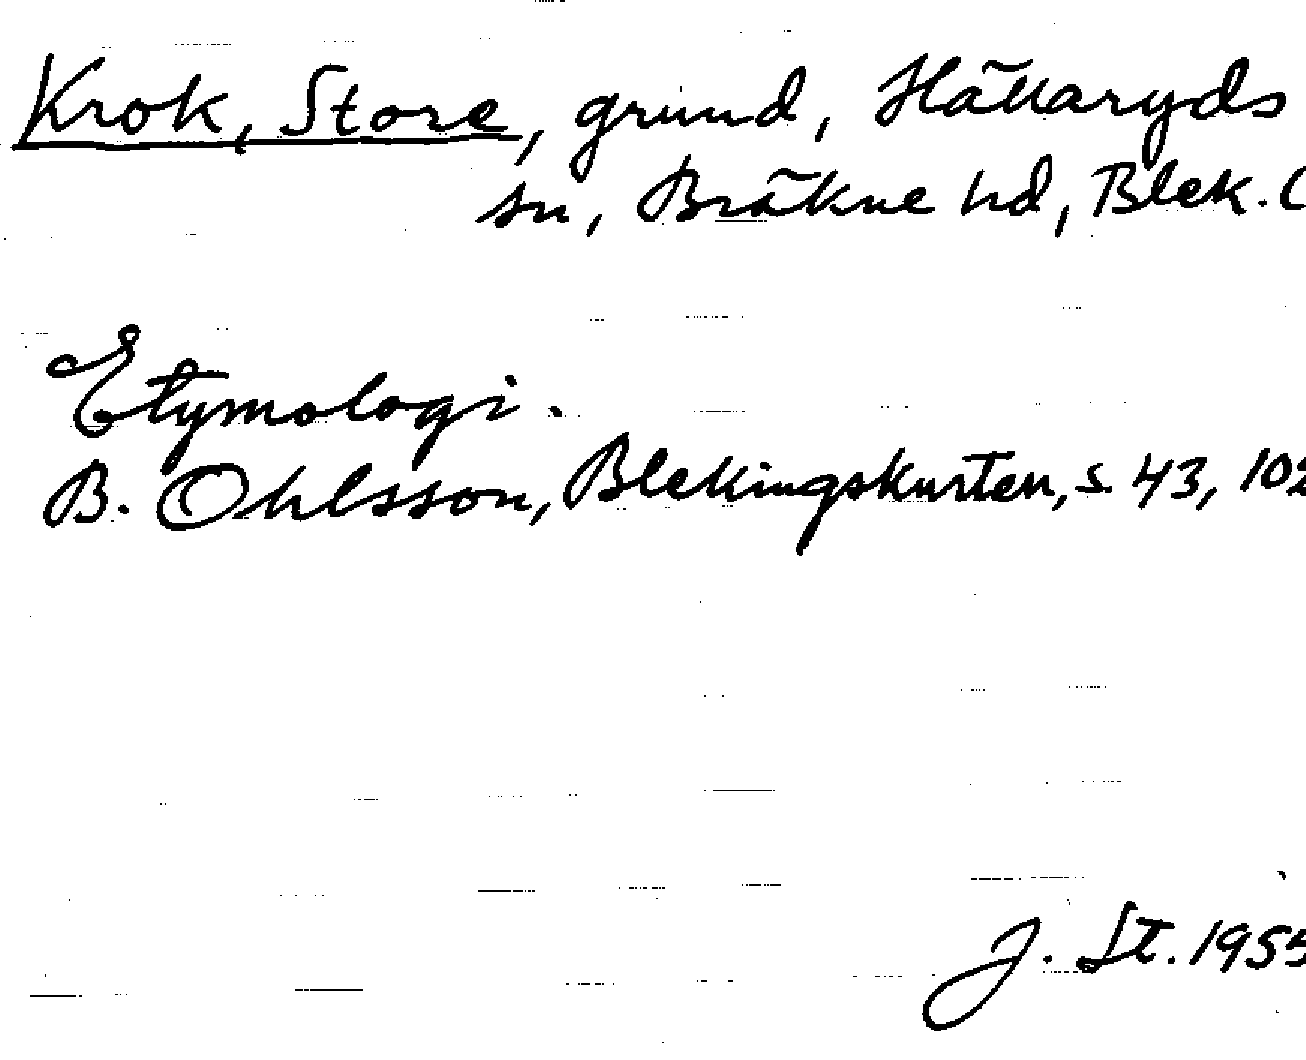 Krok, Store, grund, Hällaryds
sn, Bräkne hd, Blek. l
Etymologi.
B. Ohlsson, Blekingskusten, s. 43, 102
J. St. 1955